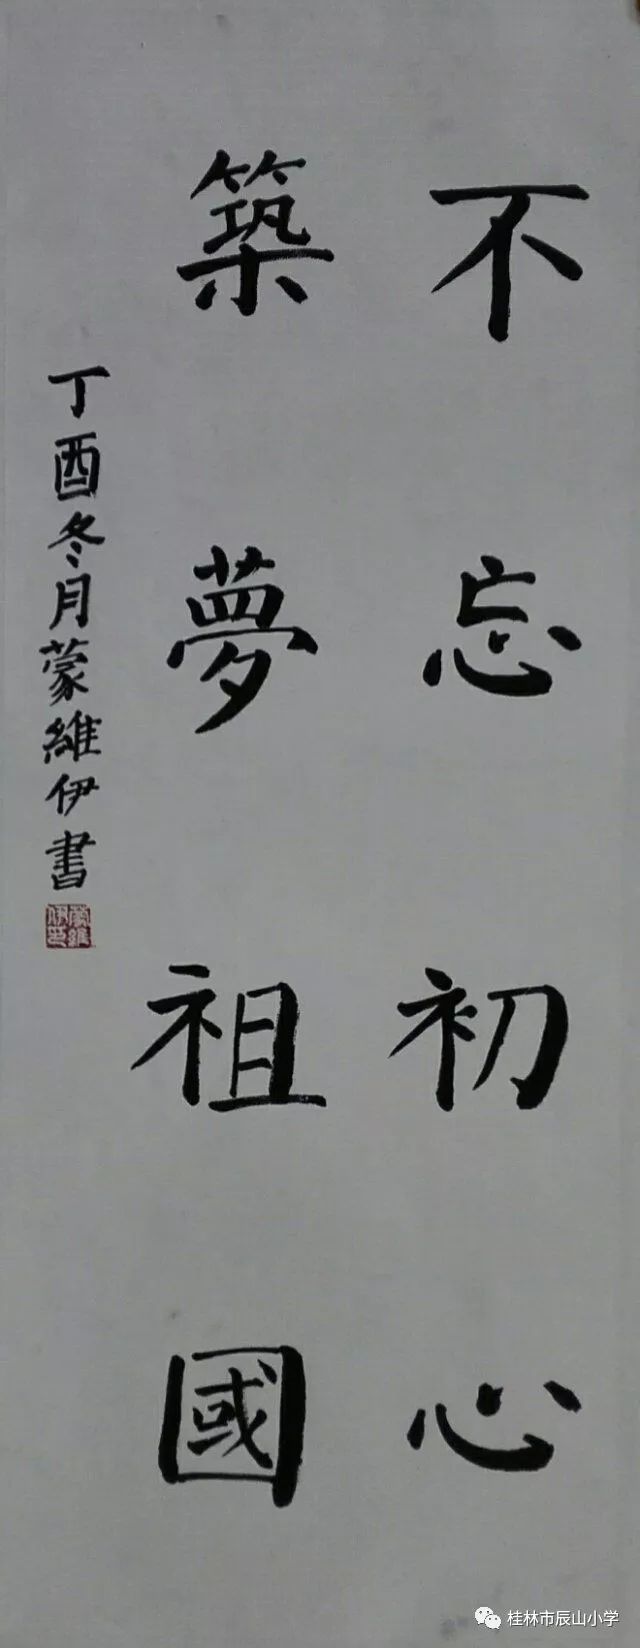 不忘初心
築夢祖國
丁酉冬月蒙維伊書
蒙維伊印
桂林市辰山小学